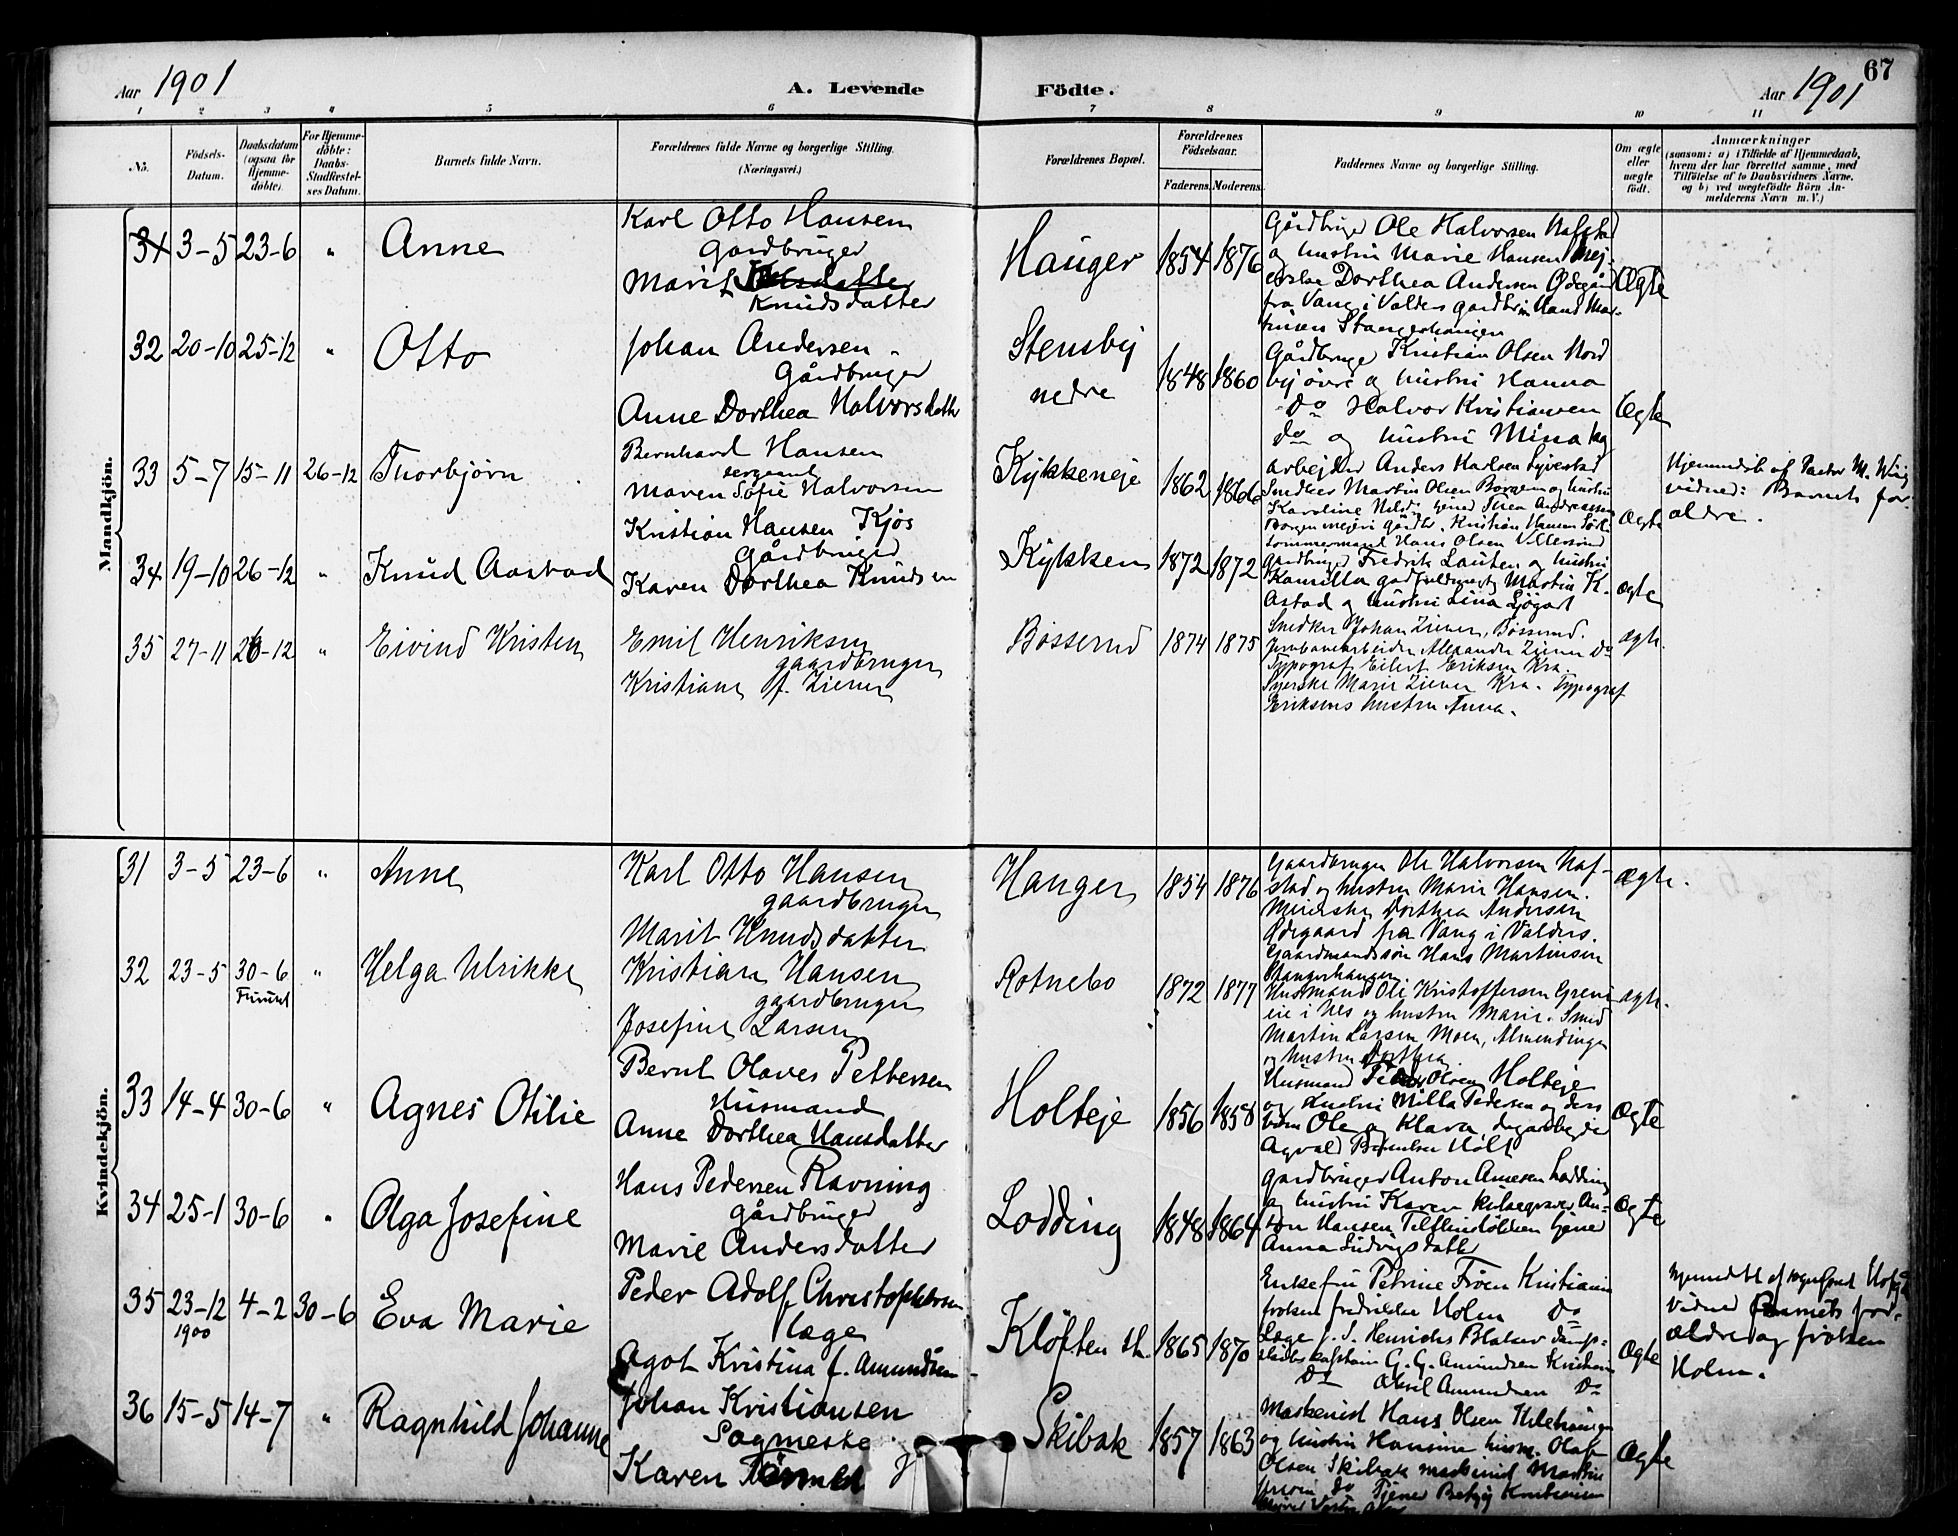 Aar 1901
A. Levende Födte.
Aar 1901
67
1 2 3 4 5 6 7 8 9 10 11
No.
Födsels-Datum.
Daabsdatum (ogsaa for Hjemme-döbte).
For Hjemme-döbte: Daabs-Stadfæstel-ses Datum.
Barnets fulde Navn.
Forældrenes fulde Navne og borgerlige Stilling. (Næringsvei.)
Forældrenes Bopæl.
Forældrenes Födselsaar.
Faderens. Moderens.
Faddernes Navne og borgerlige Stilling.
Om ægte eller uægte födt.
Anmærkninger
(saasom: a) i Tilfælde af Hjemmedaab, hvem der har forrettet samme, med Tilföielse af to Daabsvidners Navne, og b) ved uægtefödte Börn Anmelderens Navn m. V.)
Mandkjön.
31 3-5 23-6 " Anne
Karl Otto Hansen
Gardbruger
Marit
Knudsdatter
Hauger 1854 1876
Gårdbruger Ole Halvorsen Nafstad
og hustru Marie Hansen Mej-
erske Dorthea Andersen Ødegård
fra Vang i Valders Hans Mar-
tinsen Stangerhaugen
Ægte
32 20-10 25-12 " Otto
Johan Andersen
Gårdbruger
Anne Dorthea Halvorsdatter
Stensby nedre 1848 1860
Gårdbruger Kristian Olsen Nord
by øvre og hustru Hanna
Do Halvor Kristiansen
do og hustru Mina
Ægte
33 5-7 15-11 26-12 Thorbjørn
Bernhard Hansen
sergeant
Maren Sofie Halvorsen
Kykkeneje 1862 1866
Arbejder Anders
Snedker Martin Olsen Borgen og hustru
Karoline
Hans Olsen
Ægte
Hjemmedøbt af Pastor M. Wiig
vidner: Barnets for-
ældre.
34 19-10 26-12 " Knud Aastad
Kristian Hansen Kjos
Gårdbruger
Karen Dorthea Knudsen
Kykken 1872 1872
Gårdbruger Fredrik Lauten og hustru
Kamilla Martin K.
Astad og hustru Lina
ægte
35 27-11 26-12 " Eivind Kristen
Emil Henriksen
gaardbruger
Kristiane f. Ziener
Bøsserud 1874 1875
Snedker Johan Ziener, Bøsserud.
Jernbanearbeider Alexander Ziener Do
Typograf Eilert Eriksen Kra.
Syerske Marie Ziener Kra. Typograf
Eriksens hustru Anna.
ægte.
Kvindekjön.
31 3-5 23-6 " Anne
Karl Otto Hansen
gaardbruger
Marit Knudsdatter
Hauger 1854 1876
Gaardbruger Ole Halvorsen Naf-
stad og hustru Marie Hansen.
Meierske Dorthea Andersen
Ødegaard fra Vang i Valders.
Gaardmandssøn Hans Martinsen
Stangerhaugen.
Ægte.
32 23-5 30-6 " Helga Ulrikke
Furuset
Kristian Hansen
gaardbruger
Josefine Larsen
Rotnebo 1872 1877
Husmand Ole Kristoffersen Greni
eie i Nes og hustru Marie. Smed
Martin Larsen Moen, Almendingen
og hustru Dorthea.
ægte.
33 14-4 30-6 " Agnes Otilie
Bernt Olaves Pettersen
Husmand
Anne Dorthea Hansdatter
Holteje 1856 1858
Husmand Olsen Holteje
og hustru Milla Pedersen og ders
børn Ole og Klara dagarbejder
Agvald Berntsen Holt
Ægte
34 25-1 30-6 " Olga Josefine
Hans Pedersen Ravning
gårdbruger
Marie Andersdatter
Lodding 1848 1864
Gardbruger Anton Lodding
og hustru Karen kirkegraver An-
ton Hansen tjener
Anna Ludvigsdatter
Ægte
35 23-12 1900 4-2 30-6 Eva Marie
Peder Adolf Christophersen
læge
Agot Kristina f. Amundsen
Kløften st. 1865 1870
Enkefru Petrine Frøen Kristiania
frøken Fredrikke Holm Do
Læge J. S. Henrichs damp-
skibskaptein G. G. Amundsen Kristiania
Do Aksel Amundsen Do
Ægte
Hjemmedøbt af
vidner Barnets for-
ældre og frøken
Holm.
36 15-5 14-7 " Ragnhild Johanne
Johan Kristiansen
Sagmester
Karen
Skibak 1857 1863
Maskenist Hans Olsen
og hustru Hansine Olaf
Olsen Skibak maskinist Martin
do Tjener Betzy Kristiansen
Ægte